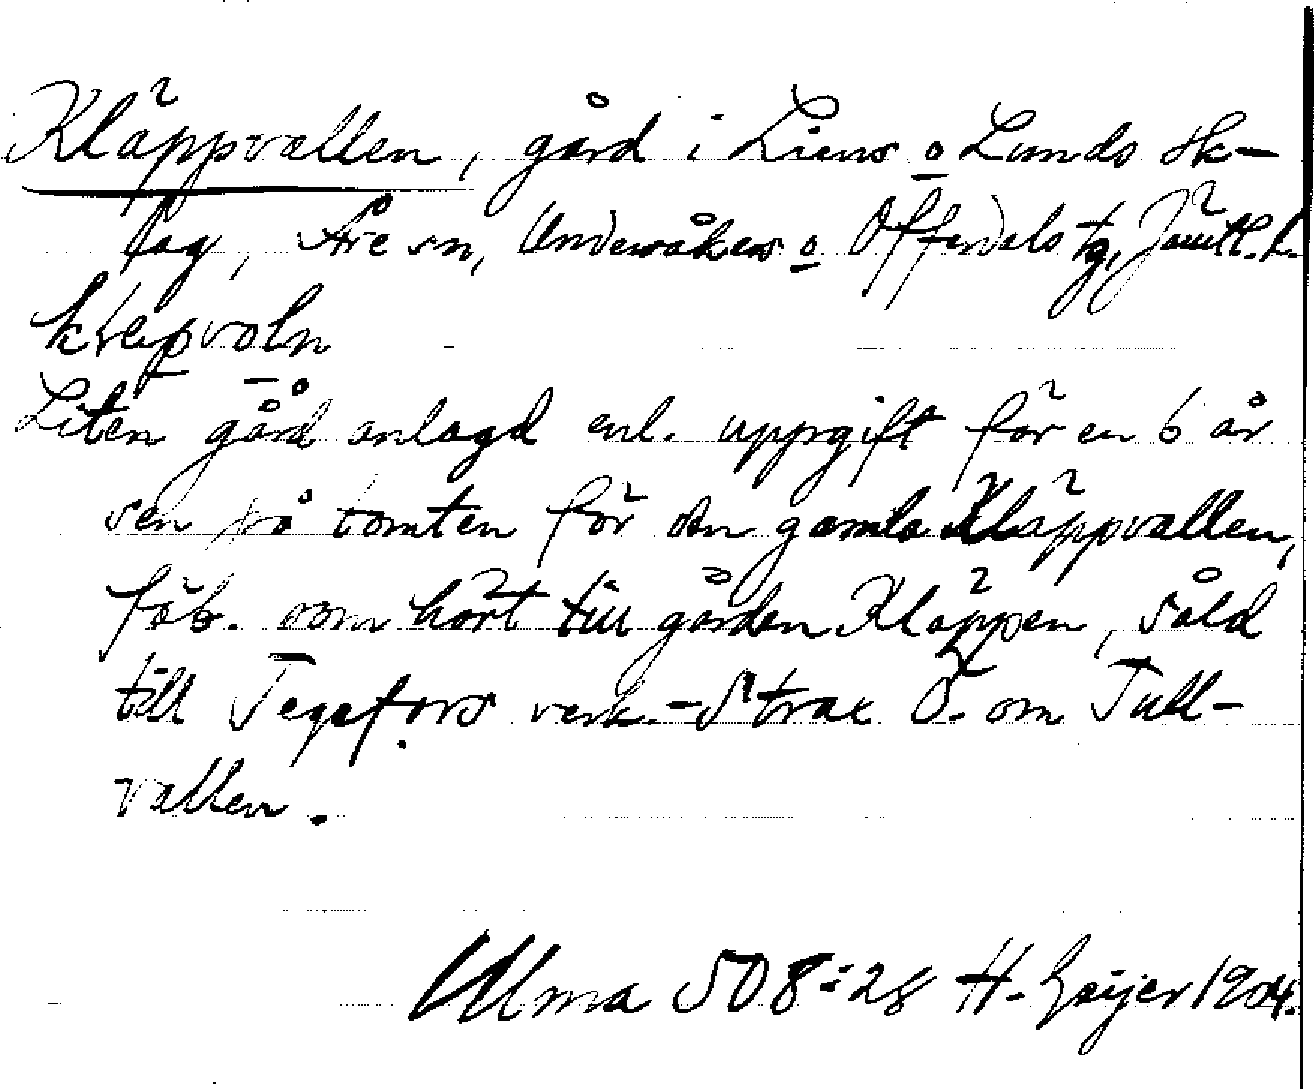 Kläppvallen, gård i Liens o Lunds sk-
lag, Åre sn, Undersåkers o Offerdals tg, Jämtl. l.
klepvoln
Liten gård anlagd enl. uppgift för en 6 år
sen på tomten för den gamla Kläppvallen,
fäb. som hört till gården Kläppen, såld
till Tegefors verk. - Strax Ö. om Tull-
vallen.
Ulma 508:28 H. Geijer 1904.